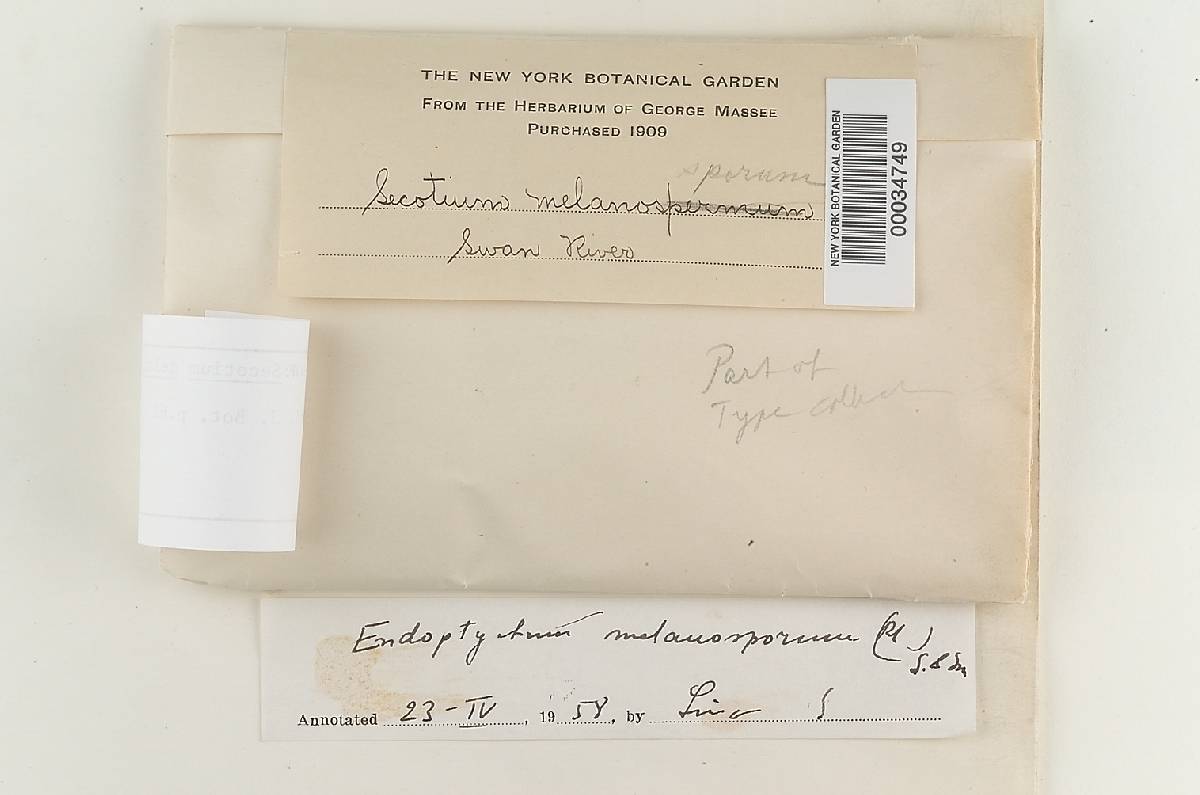 THE NEW YORK BOTANICAL GARDEN
FROM THE HERBARIUM OF GEORGE MASSEE
PURCHASED 1909
sporum
Secotium melanospermum
Swan River
NEW YORK BOTANICAL GARDEN
00034749
Part of
Type
Secotium
J. Bot. p.
Endoptychum melanosporum
Annotated 23-IV, 1958, by